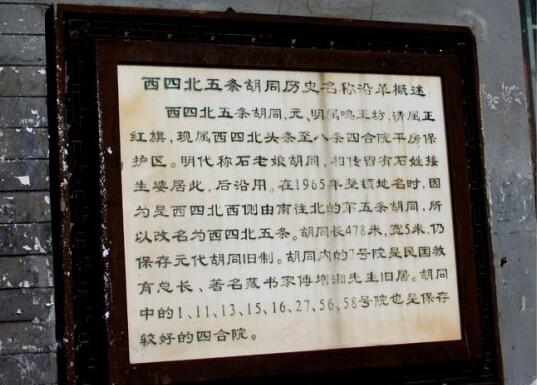 西四北五条胡同历史名称沿革概述
西四北五条胡同,元、明属鸣玉坊,清属正
红旗,现属西四北头条至八条四合院平房保
护区。明代称石老娘胡同,相传曾有石姓接
生婆居此,后沿用。在1965年整顿地名时,因
为是西四北西侧由南往北的第五条胡同,所
以改名为西四北五条。胡同长478米,宽5米,仍
保存元代胡同旧制。胡同内的7号院是民国教
育总长、著名藏书家傅增湘先生旧居。胡同
中的1、11、13、15、16、27、56、58号院也是保存
较好的四合院。